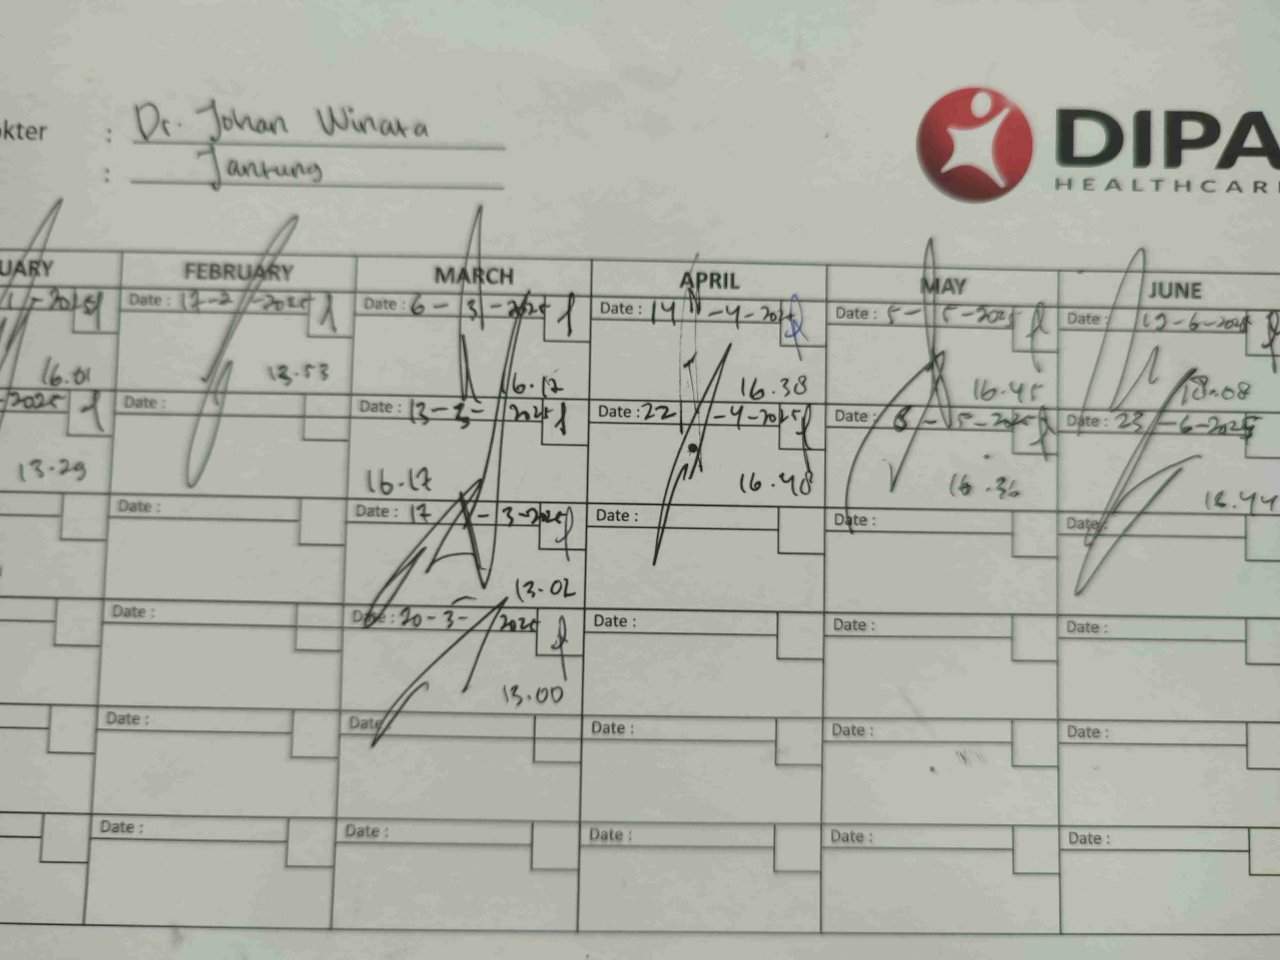 kter : Dr. Johan Winata
: Jantung
DIPA
HEALTHCAR
UARY FEBRUARY MARCH APRIL MAY JUNE
1-2025 Date : 17-2-2025 Date : 6-3-2025 Date : 14-4-2025 Date : 5-5-2025 Date : 12-6-2025
16.01 13.53 16.12 16.38 16.45 18.08
2025 Date : Date : 13-3-2025 Date : 22-4-2025 Date : 8-5-2025 Date : 23-6-2025
13.29 16.17 16.48 16.36 16.44
Date : Date : 17-3-2025 Date : Date : Date :
13.02
Date : Date : 20-3-2025 Date : Date : Date :
13.00
Date : Date Date : Date : Date :
Date : Date : Date : Date : Date :